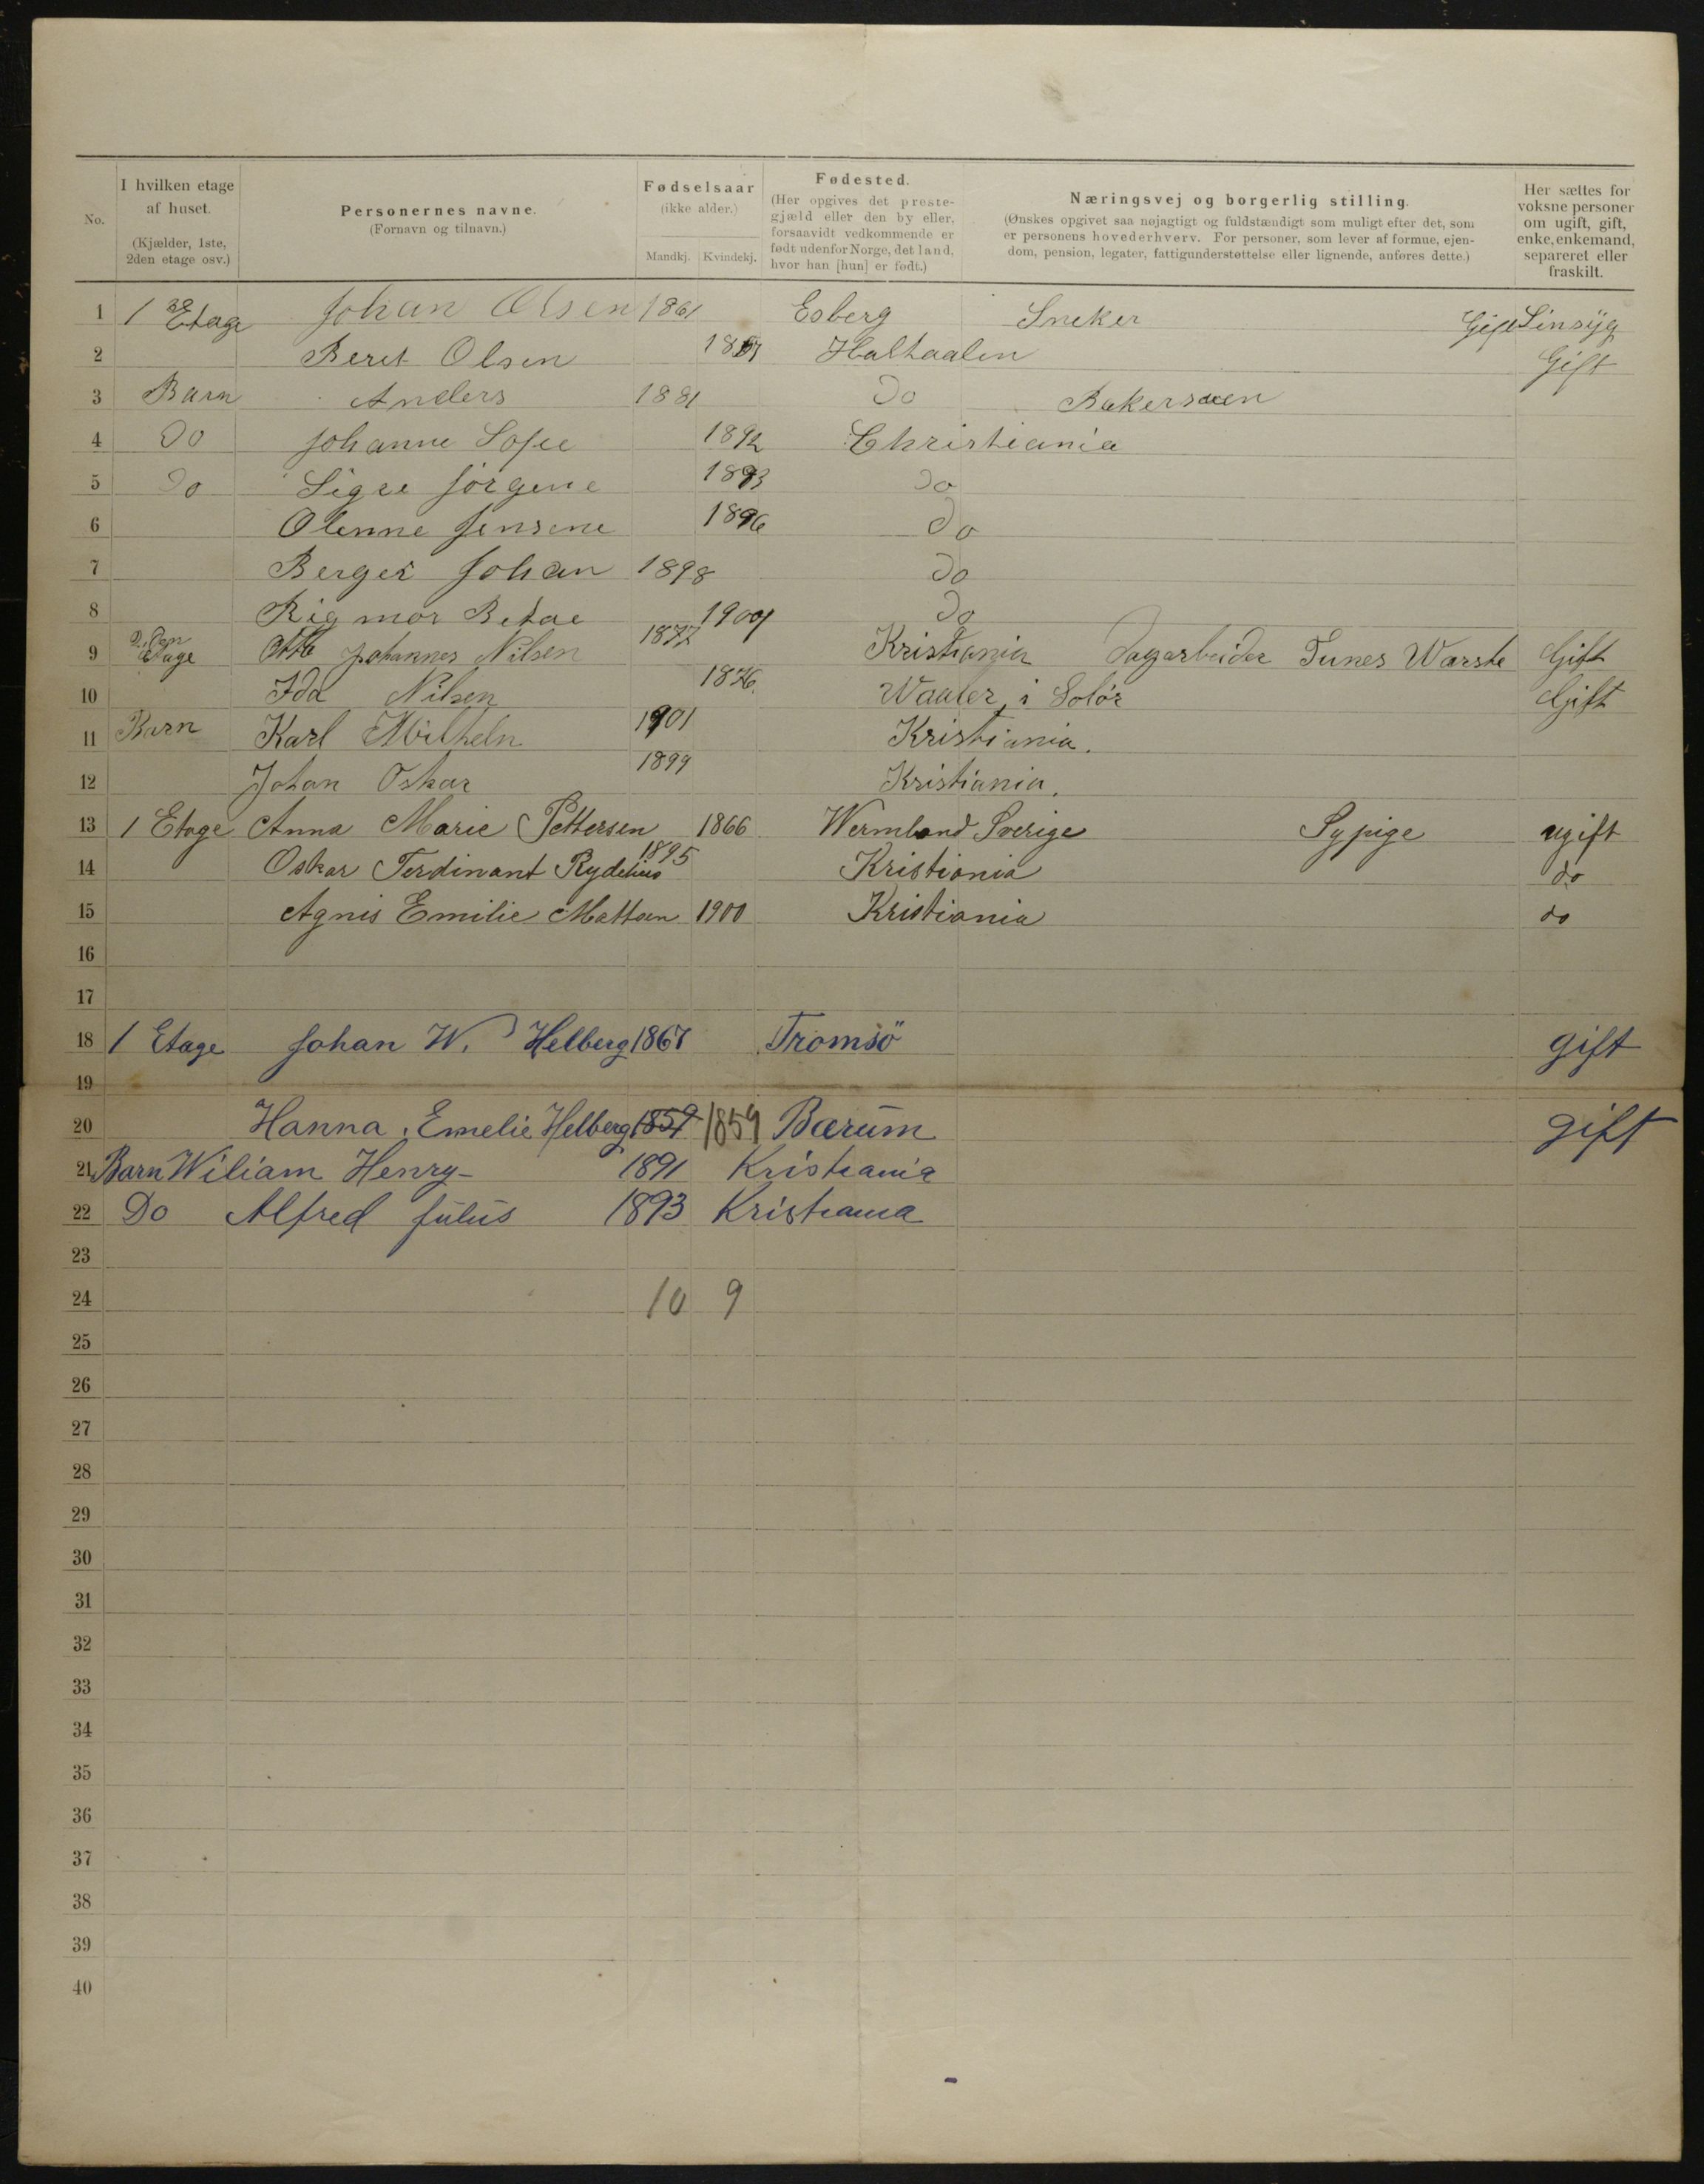 No.
I hvilken etage af huset. (Kjælder, 1ste, 2den etage osv.)
Personernes navne. (Fornavn og tilnavn.)
Fødselsaar (ikke alder.) Mandkj. Kvindekj.
Fødested. (Her opgives det prestegjæld eller den by eller, forsaavidt vedkommende er født udenfor Norge, det land, hvor han [hun] er født.)
Næringsvej og borgerlig stilling. (Ønskes opgivet saa nøjagtigt og fuldstændigt som muligt efter det, som er personens hovederhverv. For personer, som lever af formue, ejendom, pension, legater, fattigunderstøttelse eller lignende, anføres dette.)
Her sættes for voksne personer om ugift, gift, enke, enkemand, separeret eller fraskilt.
1 1 Etage Johan Olsen 1861 Esberg Sneker Gift Sinsÿg
2 Beret Olsen Haltaalen Gift
3 Barn Anders 1881 Do
4 Do Johanne Sofie 1892 Christiania
5 Do Jörgene 1893 Do
6 Olenne Jensene 1896 Do
7 Berger Johan 1898 Do
8 Rigmor Do
9 2den Etage Otto Johannes Nilsen 1877 Kristiania Dagarbeider Tunes Warste Gift
10 Ida Nilsen 1876 Waaler i Solör Gift
11 Barn Karl Wilheln 1901 Kristiania.
12 Johan Oskar 1899 Kristiania.
13 1 Etage Anna Marie Pettersen 1866 Wermland Sverige Sypige ugift
14 Oskar Ferdinant Rydelius 1895 Kristiania do
15 Agnis Emilie 1900 Kristiania do
16
17
18 1 Etage Johan W. Helberg 1867 Tromsö gift
19
20 Hanna Emelie Helberg 1859 1859 Bærum gift
21 Barn Wiliam Henry 1891 Kristiania
22 Do Alfred Julius 1893 Kristiania
23
24 10 9
25
26
27
28
29
30
31
32
33
34
35
36
37
38
39
40